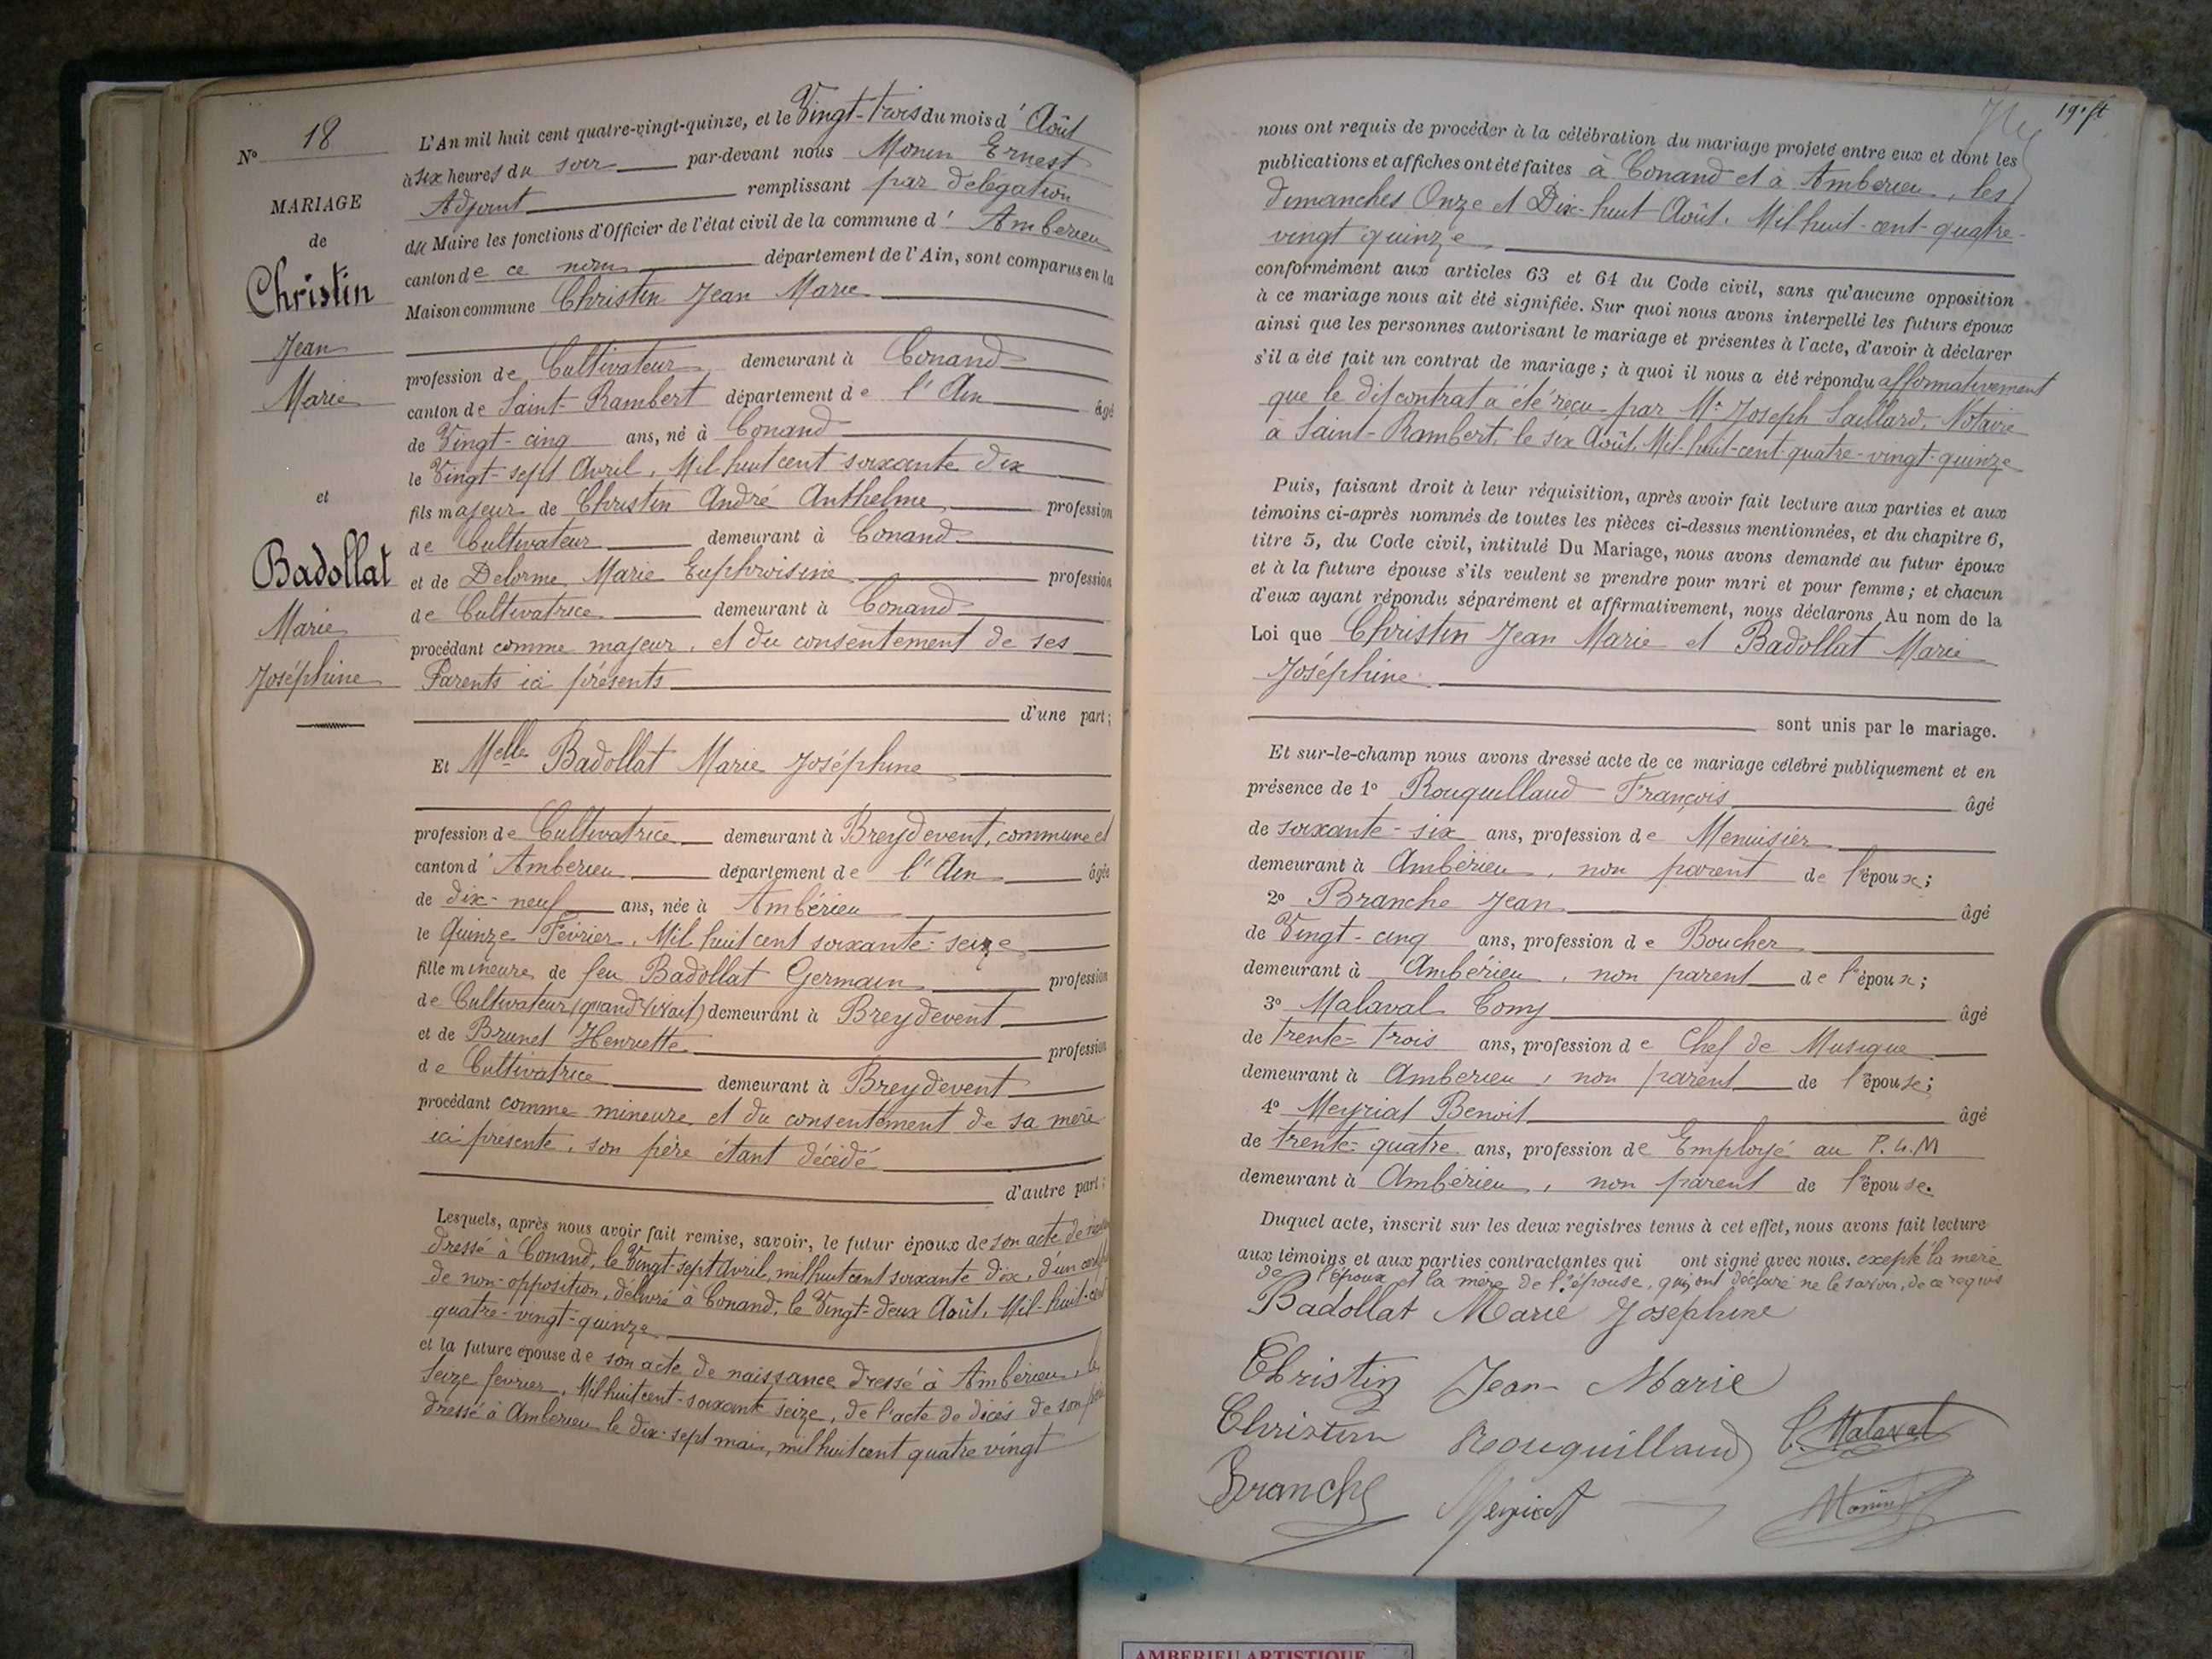 N° 18
MARIAGE
de
Christin
Jean
Marie
et
Badollat
Marie
Joséphine
L'An mil huit cent quatre-vingt-quinze, et le Vingt-trois du mois d' Août
à six heures du soir par-devant nous Monin Ernest
Adjoint remplissant par délégation
du Maire les fonctions d'Officier de l'état civil de la commune d' Ambérieu
canton de ce nom département de l'Ain, sont comparus en la
Maison commune Christin Jean Marie
profession de Cultivateur demeurant à Conand
canton de Saint-Rambert département de l'Ain âgé
de Vingt-cinq ans, né à Conand
le Vingt-sept Avril, Mil huit cent soixante dix
fils majeur de Christin André Anthelme profession
de Cultivateur demeurant à Conand
et de Delorme Marie Euphroisine profession
de Cultivatrice demeurant à Conand
procédant comme majeur, et du consentement de ses
Parents ici présents
d'une part;
Et Melle Badollat Marie Joséphine
profession de Cultivatrice demeurant à Breydevent, commune et
canton d' Ambérieu département de l'Ain âgée
de dix-neuf ans, née à Ambérieu
le Quinze Février, Mil huit cent soixante-seize
fille mineure de feu Badollat Germain profession
de Cultivateur (quand vivait) demeurant à Breydevent
et de Brunet Henriette profession
de Cultivatrice demeurant à Breydevent
procédant comme mineure et du consentement de sa mère
ici présente, son père étant décédé
d'autre part;
Lesquels, après nous avoir fait remise, savoir, le futur époux de son acte de
dressé à Conand, le Vingt-sept Avril, mil huit cent soixante dix, d'un
de non-opposition, délivré à Conand, le Vingt-deux Août, Mil-huit-cent
quatre-vingt-quinze
et la future épouse de son acte de naissance dressé à Ambérieu, le
Seize février, Mil huit cent-soixante seize, de l'acte de décès de son père
dressé à Ambérieu le dix-sept mai, mil huit cent quatre vingt
19.
nous ont requis de procéder à la célébration du mariage projeté entre eux et dont les
publications et affiches ont été faites à Conand et à Ambérieu, les
dimanches Onze et Dix-huit Août, Mil huit-cent-quatre-
vingt quinze
conformément aux articles 63 et 64 du Code civil, sans qu'aucune opposition
à ce mariage nous ait été signifiée. Sur quoi nous avons interpellé les futurs époux
ainsi que les personnes autorisant le mariage et présentes à l'acte, d'avoir à déclarer
s'il a été fait un contrat de mariage; à quoi il nous a été répondu affirmativement
que le dit contrat a été reçu par Me Joseph Saillard, Notaire
à Saint-Rambert, le six Août, Mil-huit-cent-quatre-vingt-quinze
Puis, faisant droit à leur réquisition, après avoir fait lecture aux parties et aux
témoins ci-après nommés de toutes les pièces ci-dessus mentionnées, et du chapitre 6,
titre 5, du Code civil, intitulé Du Mariage, nous avons demandé au futur époux
et à la future épouse s'ils veulent se prendre pour mari et pour femme; et chacun
d'eux ayant répondu séparément et affirmativement, nous déclarons Au nom de la
Loi que Christin Jean Marie et Badollat Marie
Joséphine
sont unis par le mariage.
Et sur-le-champ nous avons dressé acte de ce mariage célébré publiquement et en
présence de 1° Rouquillaud François âgé
de soixante-six ans, profession de Menuisier
demeurant à Ambérieu, non parent de l'époux;
2° Branche Jean âgé
de Vingt-cinq ans, profession de Boucher
demeurant à Ambérieu, non parent de l'époux;
3° Malaval Tony âgé
de trente-trois ans, profession de Chef de Musique
demeurant à Ambérieu, non parent de l'épouse;
4° Meyriat Benoit âgé
de trente-quatre ans, profession de Employé au P.L.M
demeurant à Ambérieu, non parent de l'épouse.
Duquel acte, inscrit sur les deux registres tenus à cet effet, nous avons fait lecture
aux témoins et aux parties contractantes qui ont signé avec nous, excepté la mère
de l'époux et la mère de l'épouse, qui ont déclaré ne le savoir, de ce requis
Badollat Marie Joséphine
Christin Jean-Marie
Christin Rouquillaud Malaval
Branche Meyriat Monin
AMBERIEU ARTISTIQUE